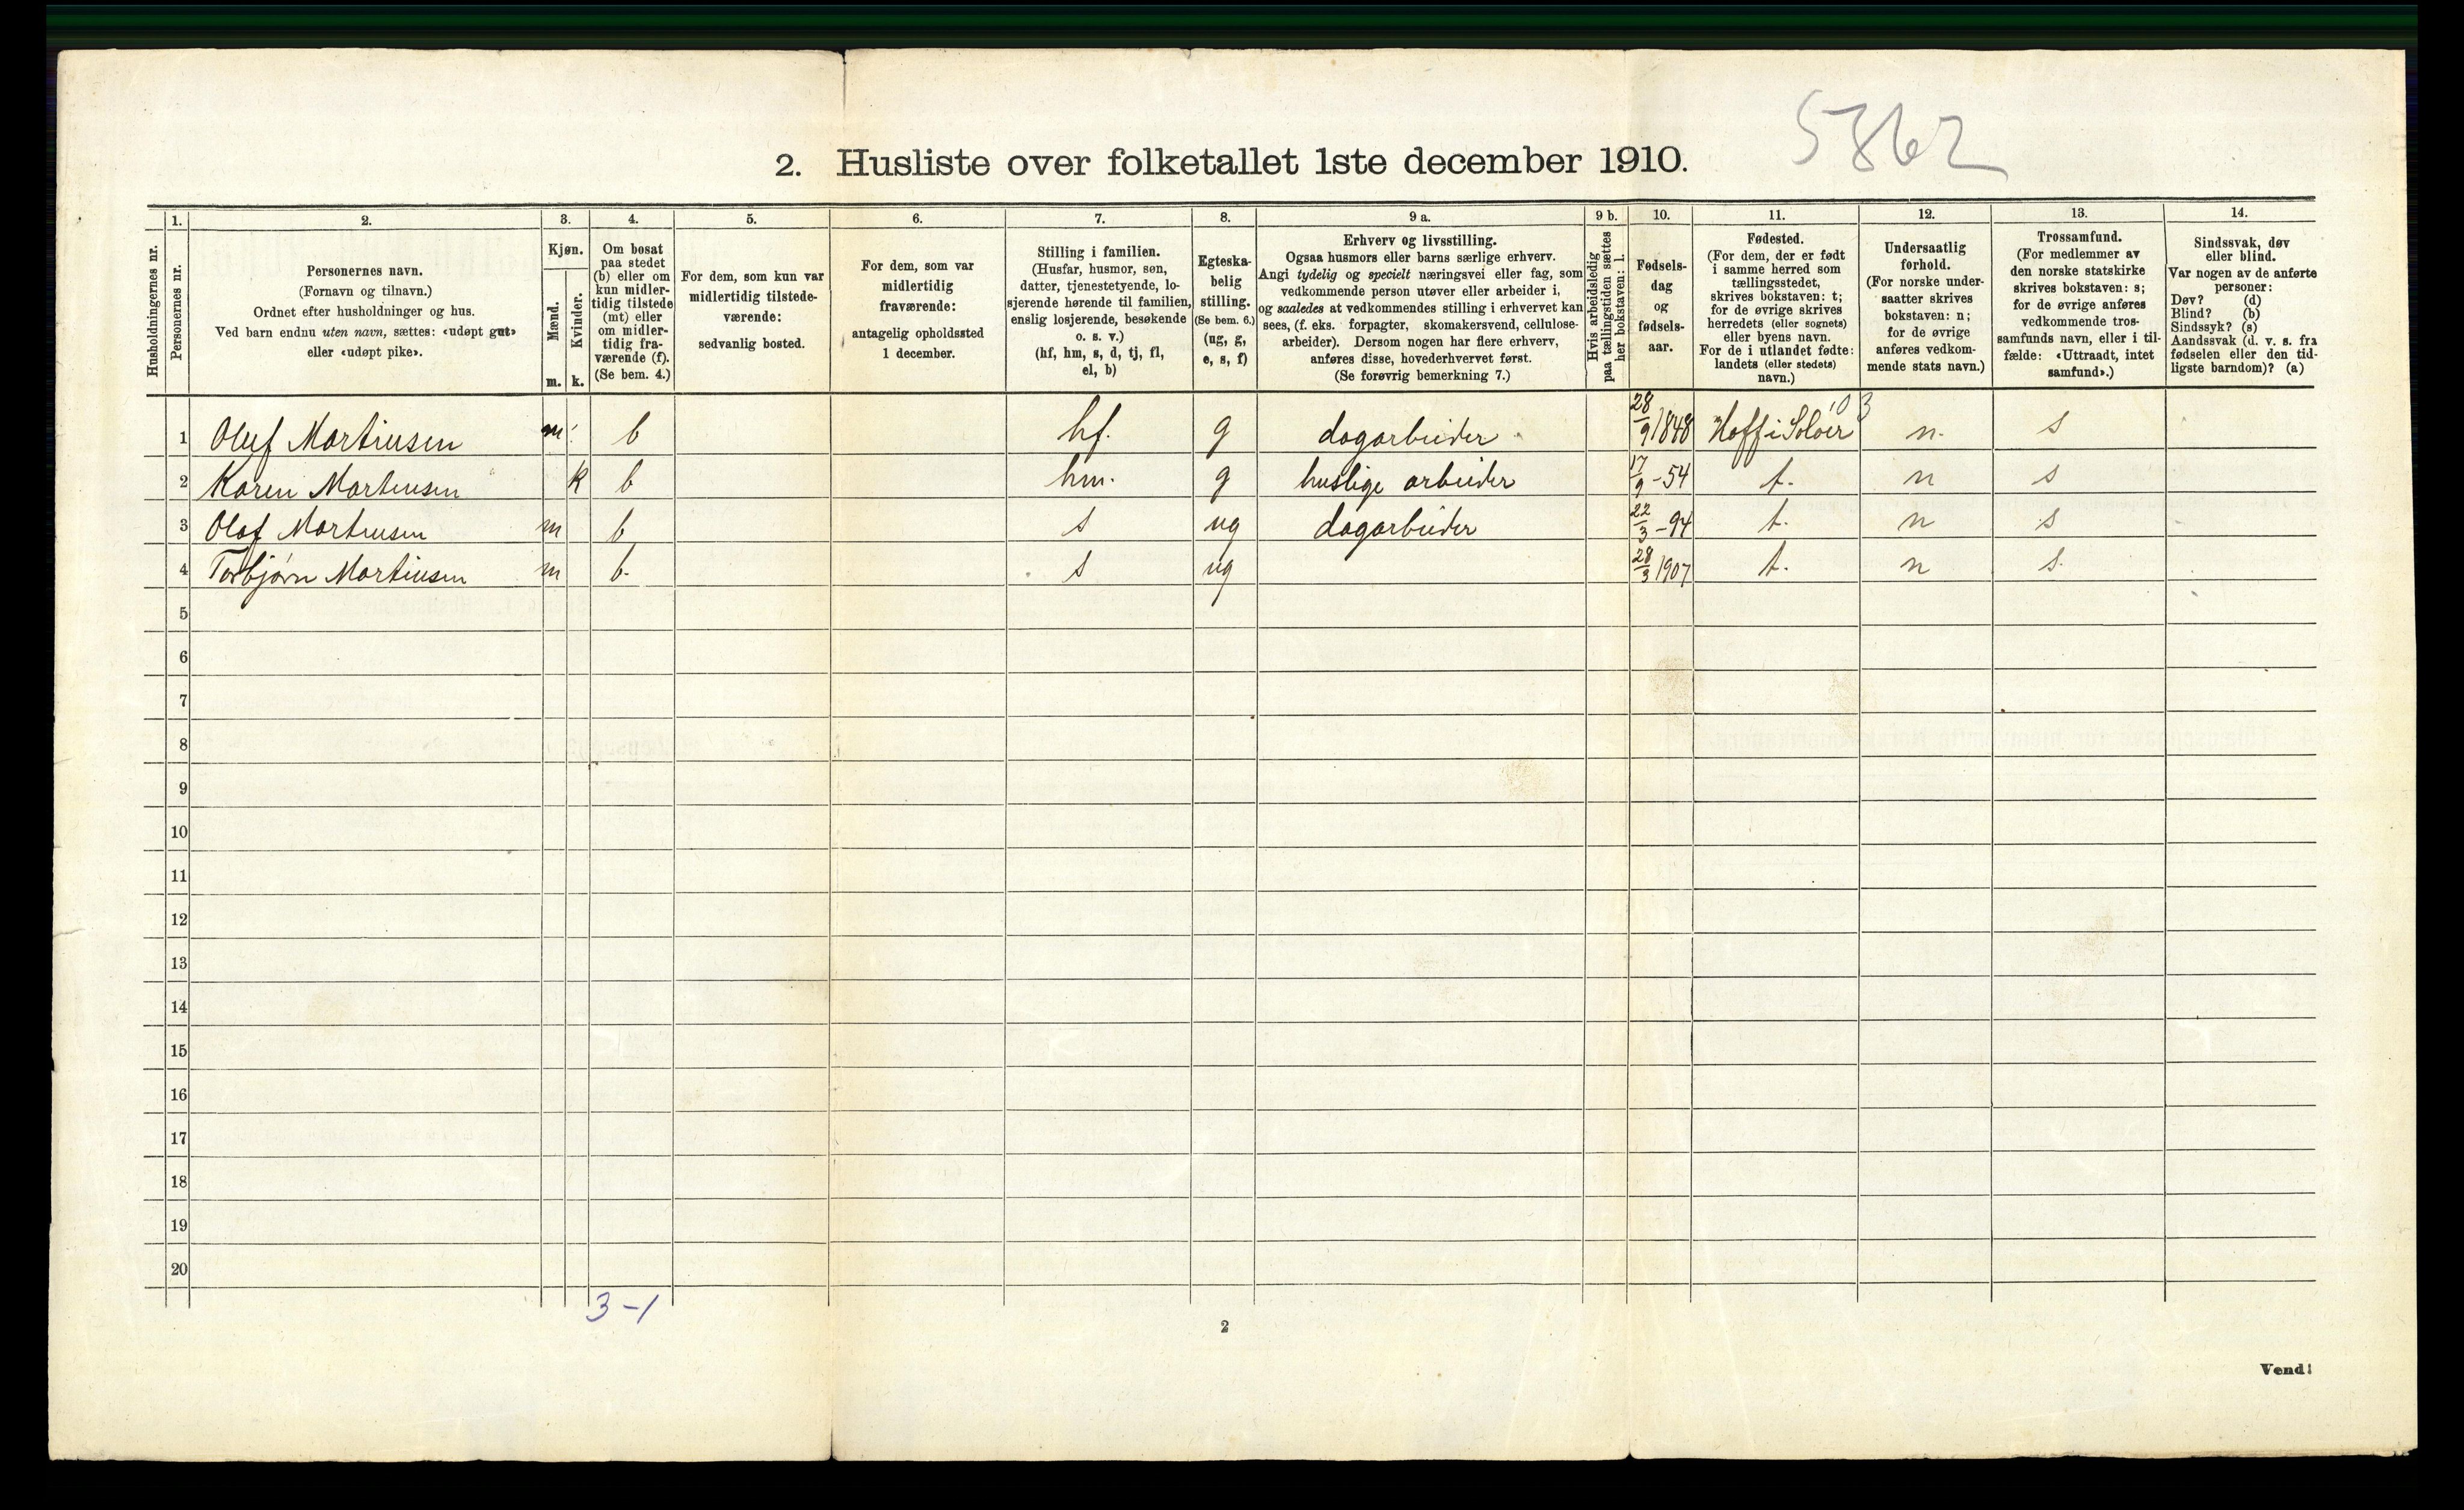 5862
2. Husliste over folketallet 1ste december 1910.
Husholdningernes nr.
1. Personernes nr.
2. Personernes navn.
(Fornavn og tilnavn.)
Ordnet efter husholdninger og hus.
Ved barn endnu uten navn, sættes: «udøpt gut»
eller «udøpt pike».
3. Kjøn.
Mænd. m.
Kvinder. k.
4. Om bosat
paa stedet
(b) eller om
kun midler-
tidig tilstede
(mt) eller
om midler-
tidig fra-
værende (f).
(Se bem. 4.)
5. For dem, som kun var
midlertidig tilstede-
værende:
sedvanlig bosted.
6. For dem, som var
midlertidig
fraværende:
antagelig opholdssted
1 december.
7. Stilling i familien.
(Husfar, husmor, søn,
datter, tjenestetyende, lo-
sjerende hørende til familien,
enslig losjerende, besøkende
o. s. v.)
(hf, hm, s, d, tj, fl,
el, b)
8. Egteska-
belig
stilling.
(Se bem. 6.)
(ug, g,
e, s, f)
9 a. Erhverv og livsstilling.
Ogsaa husmors eller barns særlige erhverv.
Angi tydelig og specielt næringsvei eller fag, som
vedkommende person utøver eller arbeider i,
og saaledes at vedkommendes stilling i erhvervet kan
sees, (f. eks. forpagter, skomakersvend, cellulose-
arbeider). Dersom nogen har flere erhverv,
anføres disse, hovederhvervet først.
(Se forøvrig bemerkning 7.)
9 b. Hvis arbeidsledig
paa tællingstiden sættes
her bokstaven: l.
10. Fødsels-
dag
og
fødsels-
aar.
11. Fødested.
(For dem, der er født
i samme herred som
tællingsstedet,
skrives bokstaven: t;
for de øvrige skrives
herredets (eller sognets)
eller byens navn.
For de i utlandet fødte:
landets (eller stedets)
navn.)
12. Undersaatlig
forhold.
(For norske under-
saatter skrives
bokstaven: n;
for de øvrige
anføres vedkom-
mende stats navn.)
13. Trossamfund.
(For medlemmer av
den norske statskirke
skrives bokstaven: s;
for de øvrige anføres
vedkommende tros-
samfunds navn, eller i til-
fælde: «Uttraadt, intet
samfund».)
14. Sindssvak, døv
eller blind.
Var nogen av de anførte
personer:
Døv? (d)
Blind? (b)
Sindssyk? (s)
Aandssvak (d. v. s. fra
fødselen eller den tid-
ligste barndom)? (a)
1 Oluf Martinsen m b hf. g dagarbeider 28/9 1848 Hoff i Soløer 03 n. s
2 Karen Martinsen k b hm. g huslige arbeider 17/9 -54 t. n s
3 Olaf Martinsen m b s ug dagarbeider 22/3 -94 t. n s
4 Torbjørn Martinsen m b. s ug 28/3 1907 t. n s.
5
6
7
8
9
10
11
12
13
14
15
16
17
18
19
20
3-1
2
Vend!